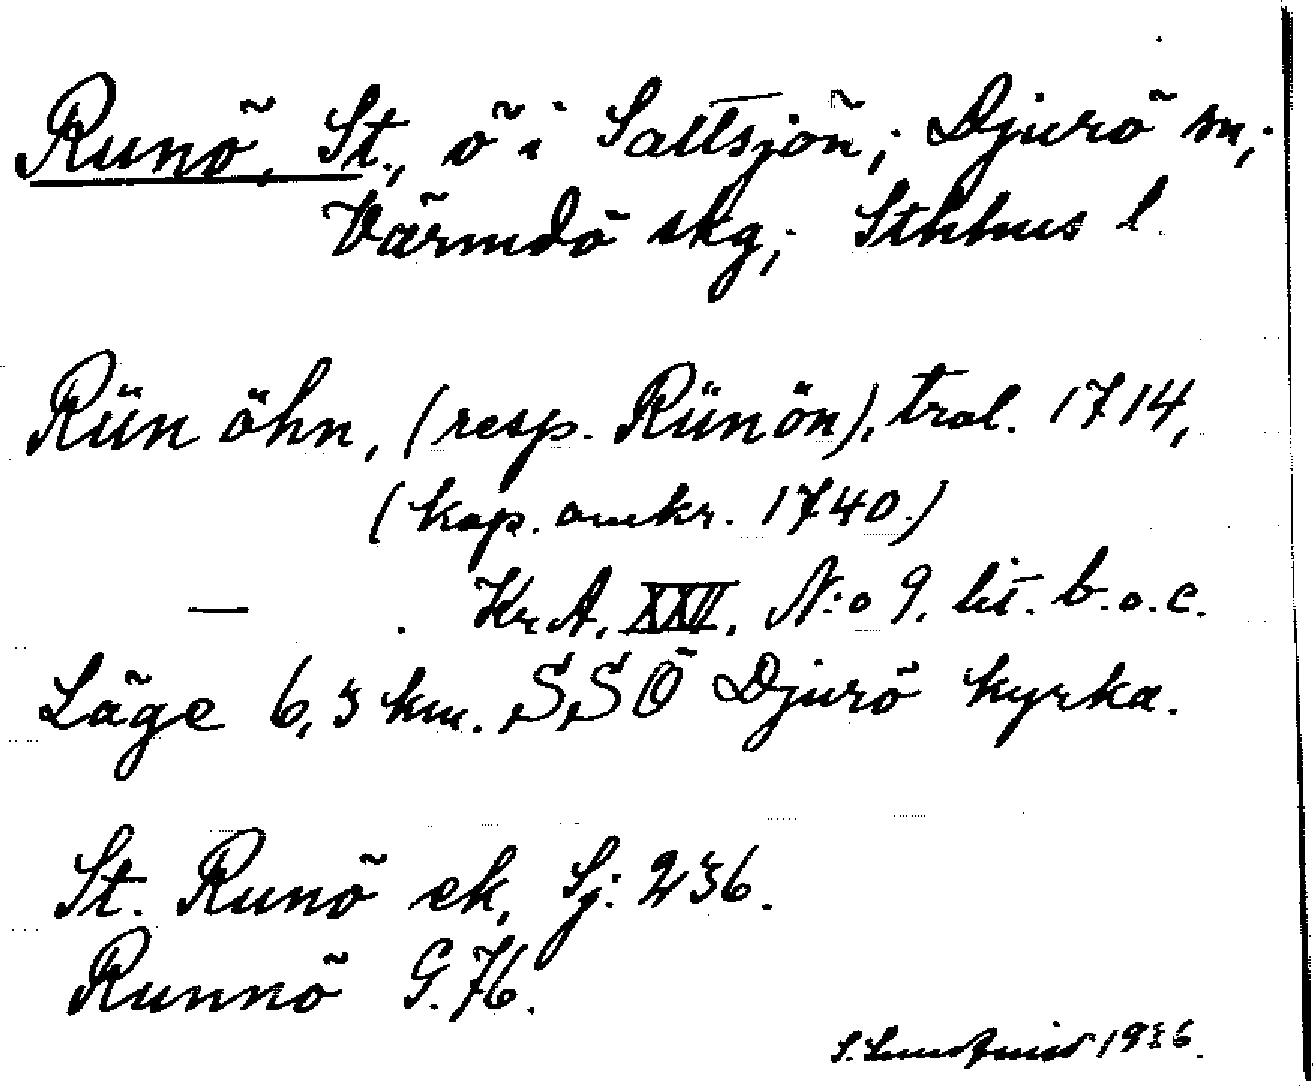 Runö, St., ö i Saltsjön; Djurö sn;
Värmdö skg; Sthlms l.
Rün öhn, (resp. Rünön), trol. 1714,
(kop. omkr. 1740.)
— . Kr.A. XXV. N:o 9. lit. b.o.c.
Läge 6,5 km. SSÖ Djurö kyrka.
St. Runö ek. Sj: 236.
Runnö G.76.
S. Lundqvist 1936.